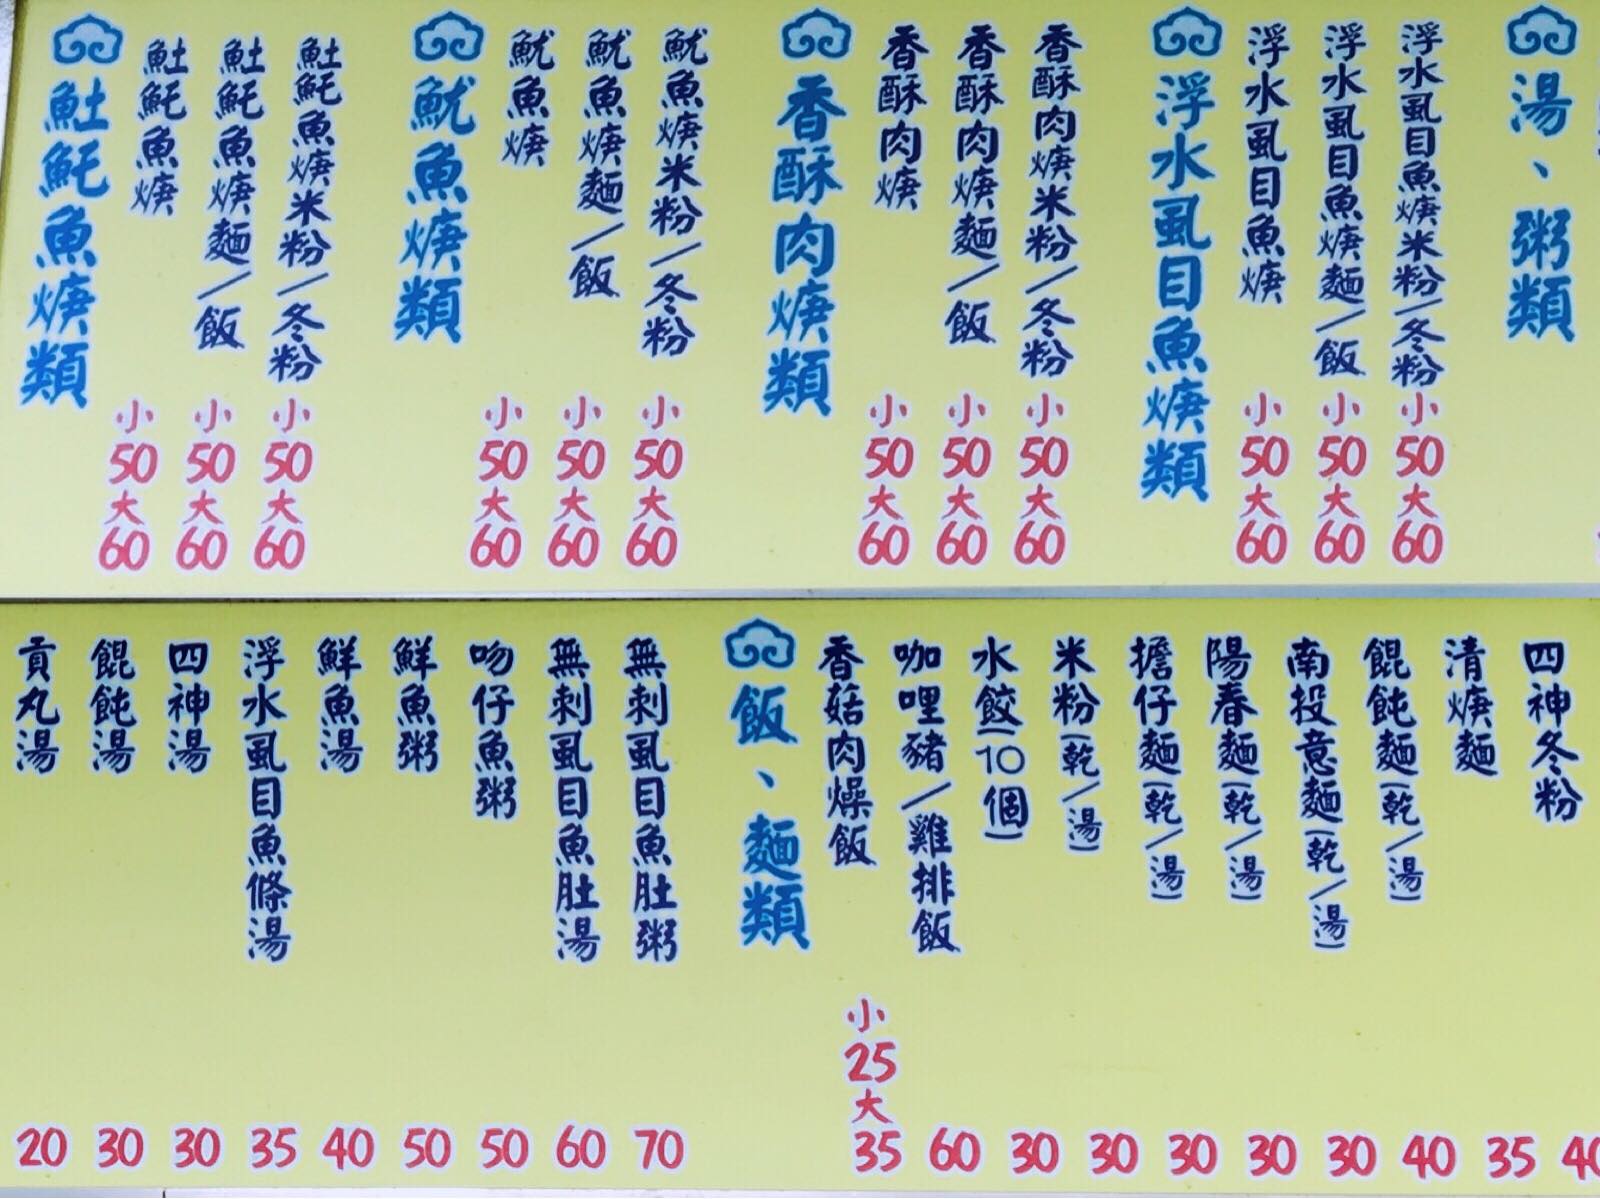 𩵚魠魚焿類
𩵚魠魚焿 小50大60
𩵚魠魚焿麵/飯 小50大60
𩵚魠魚焿米粉/冬粉 小50大60
魷魚焿類
魷魚焿 小50大60
魷魚焿麵/飯 小50大60
魷魚焿米粉/冬粉 小50大60
香酥肉焿類
香酥肉焿 小50大60
香酥肉焿麵/飯 小50大60
香酥肉焿米粉/冬粉 小50大60
浮水虱目魚焿類
浮水虱目魚焿 小50大60
浮水虱目魚焿麵/飯 小50大60
浮水虱目魚焿米粉/冬粉 小50大60
湯、粥類
貢丸湯 20
餛飩湯 30
四神湯 30
浮水虱目魚條湯 35
鮮魚湯 40
鮮魚粥 50
吻仔魚粥 50
無刺虱目魚肚湯 60
無刺虱目魚肚粥 70
飯、麵類
香菇肉燥飯 小25大35
咖哩豬/雞排飯 60
水餃(10個) 30
米粉(乾/湯) 30
擔仔麵(乾/湯) 30
陽春麵(乾/湯) 30
南投意麵(乾/湯) 30
餛飩麵(乾/湯) 40
清焿麵 35
四神冬粉 40